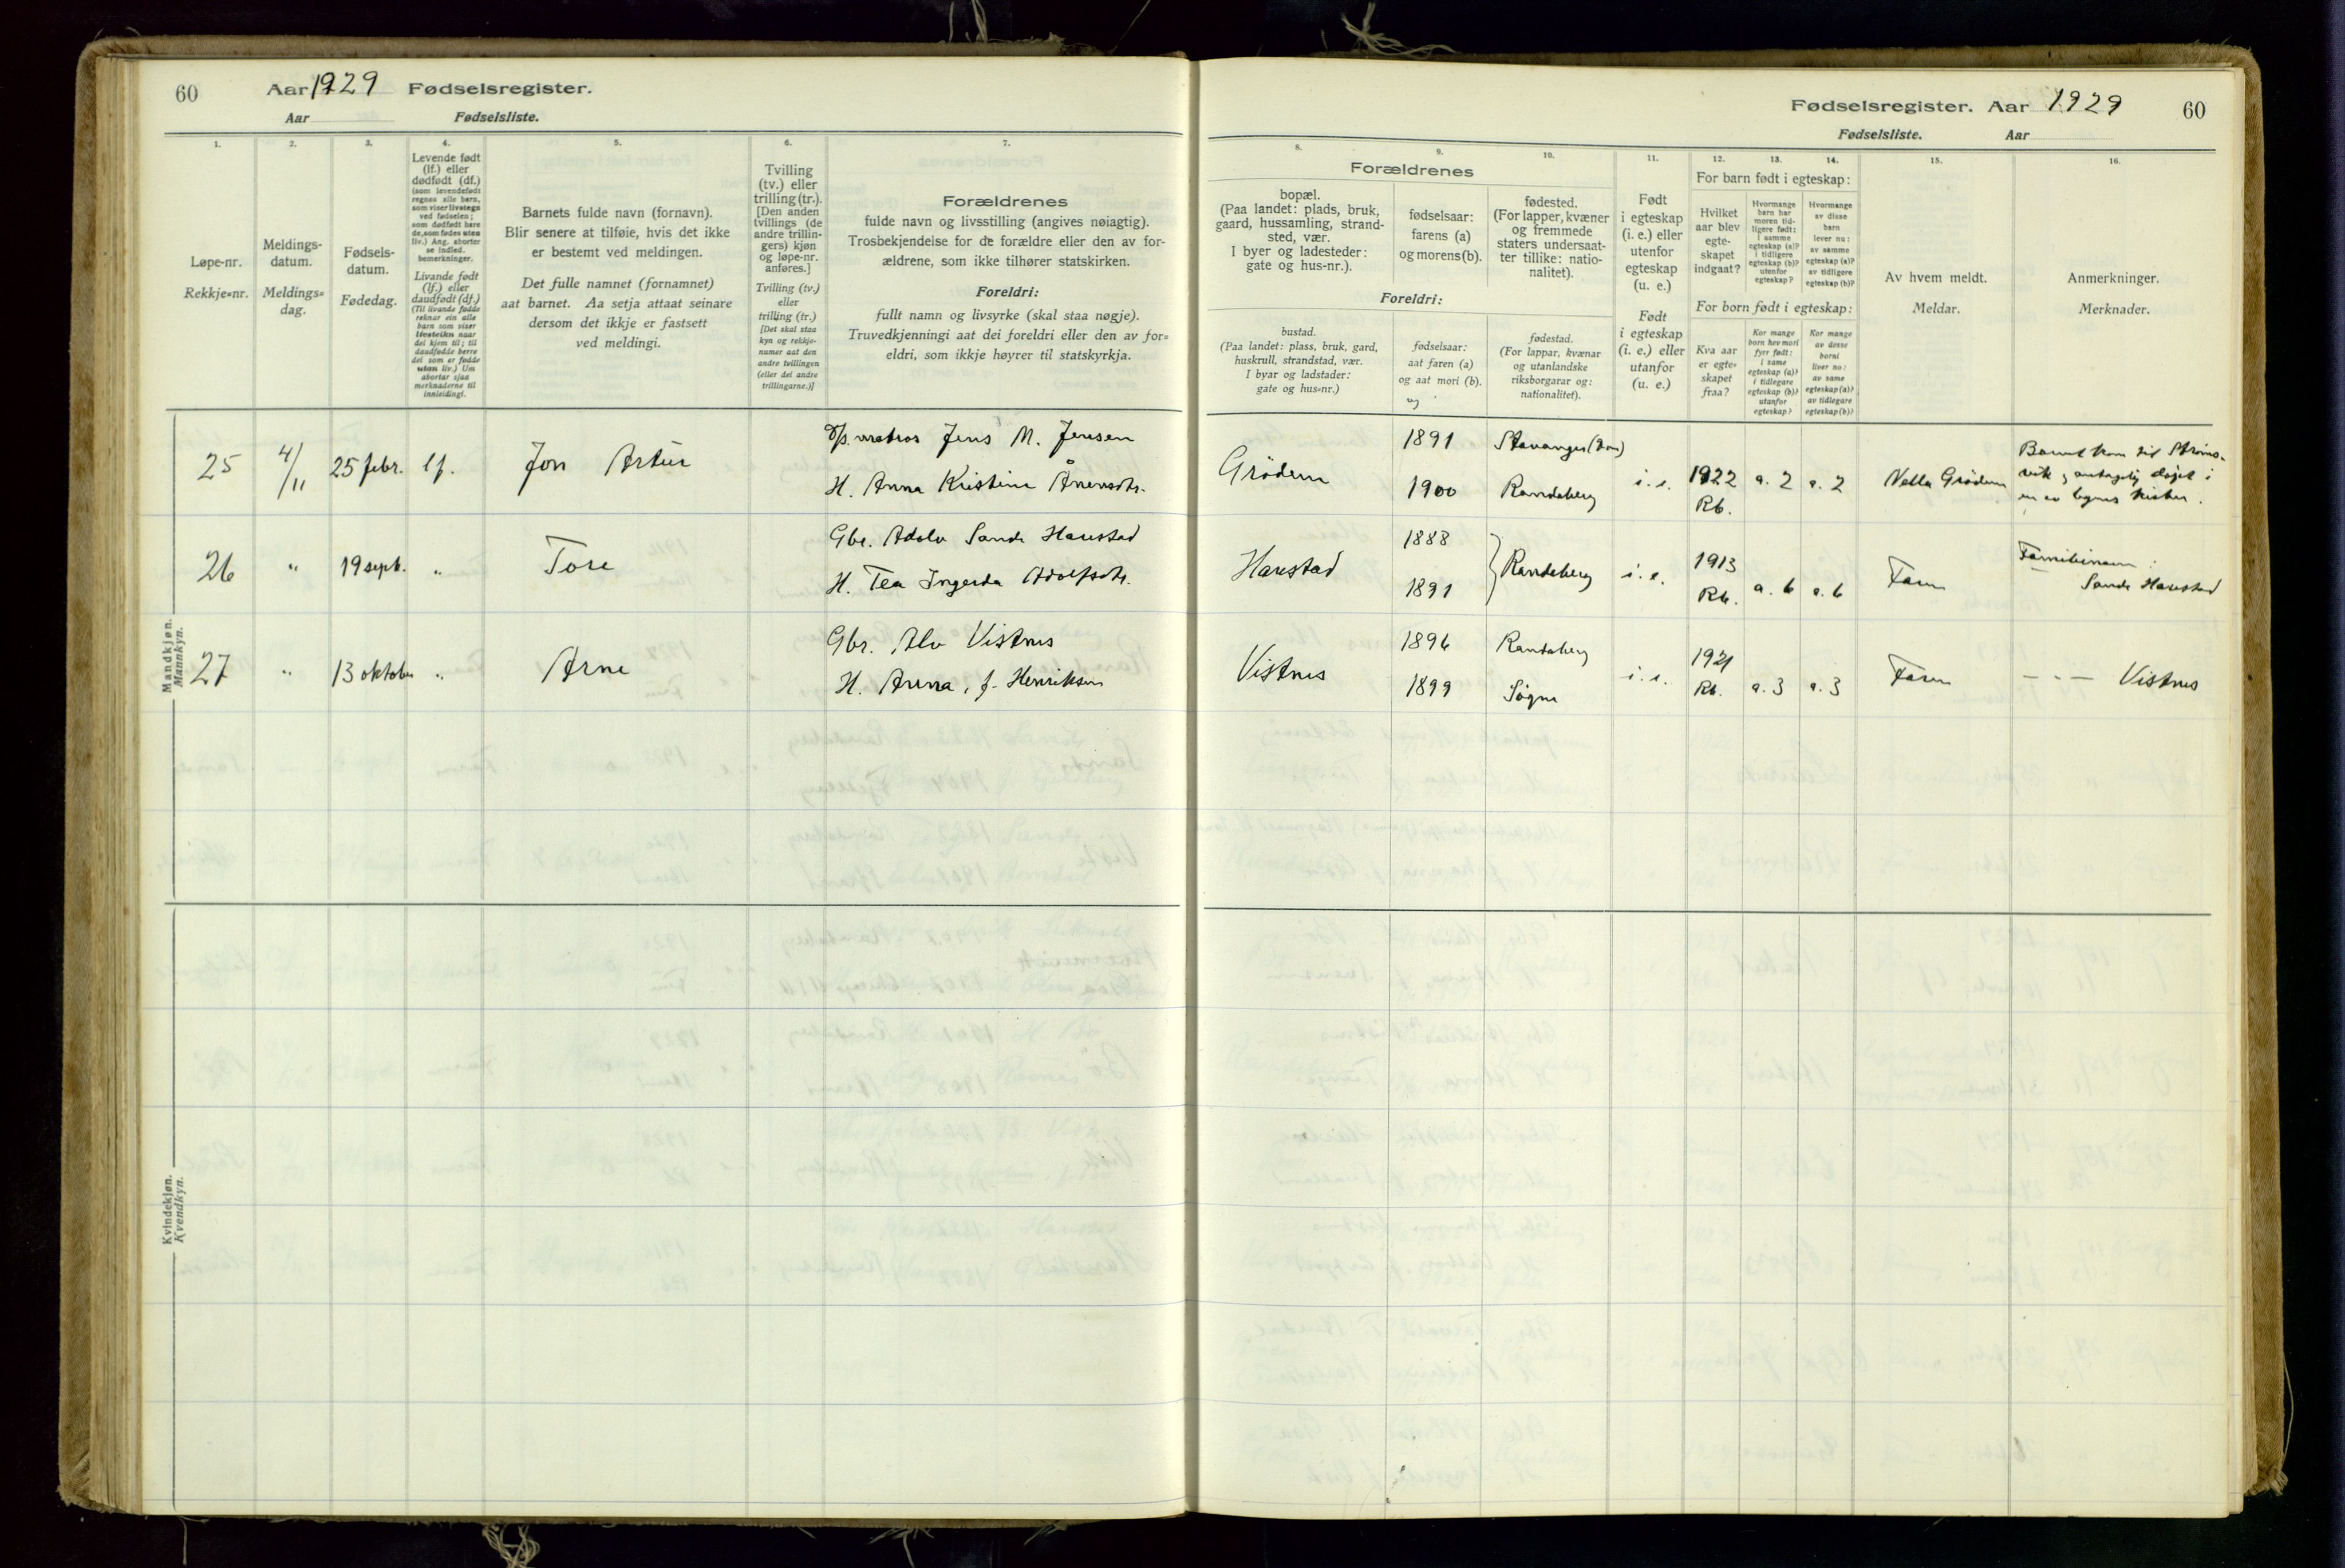 60 Aar 1929 Fødselsregister.
Aar Fødselsliste.
Fødselsregister. Aar 1929 60
Fødselsliste. Aar
1. 2. 3. 4. 5. 6. 7.
Løpe-nr.
Rekkje=nr.
Meldings-
datum.
Meldings=
dag.
Fødsels-
datum.
Fødedag.
Levende født
(lf.) eller
dødfødt (df.)
(som levendefødt
regnes alle barn,
som viser livstegn
ved fødselen;
som dødfødt bare
de, som fødes uten
liv.) Ang. aborter
se indled.
bemerkninger.
Livande født
(lf.) eller
daudfødt (df.)
(Til livande fødde
reknar ein alle
barn som viser
livsteikn naar
dei kjem til; til
daudfødde berre
dei som er fødde
utan liv.) Um
abortar sjaa
merknaderne til
innleidingi.
Barnets fulde navn (fornavn).
Blir senere at tilføie, hvis det ikke
er bestemt ved meldingen.
Det fulle namnet (fornamnet)
aat barnet. Aa setja attaat seinare
dersom det ikkje er fastsett
ved meldingi.
Tvilling
(tv.) eller
trilling (tr.).
[Den anden
tvillings (de
andre trillin-
gers) kjøn
og løpe-nr.
anføres.]
Tvilling (tv.)
eller
trilling (tr.)
[Det skal staa
kyn og rekkje-
numer aat den
andre tvillingen
(eller dei andre
trillingarne.)]
Forældrenes
fulde navn og livsstilling (angives nøiagtig).
Trosbekjendelse for de forældre eller den av for-
ældrene, som ikke tilhører statskirken.
Foreldri:
fullt namn og livsyrke (skal staa nøgje).
Truvedkjenningi aat dei foreldri eller den av for=
eldri, som ikkje høyrer til statskyrkja.
8. 9. 10. 11. 12. 13. 14. 15. 16.
Forældrenes
bopæl.
(Paa landet: plads, bruk,
gaard, hussamling, strand-
sted, vær.
I byer og ladesteder:
gate og hus-nr.).
fødselsaar:
farens (a)
og morens (b).
fødested.
(For lapper, kvæner
og fremmede
staters undersaat-
ter tillike: natio-
nalitet).
Foreldri:
bustad.
(Paa landet: plass, bruk, gard,
huskrull, strandstad, vær.
I byar og ladstader:
gate og hus=nr.)
fødselsaar:
aat faren (a)
og aat mori (b).
fødestad.
(For lappar, kvænar
og utanlandske
riksborgarar og:
nationalitet).
Født
i egteskap
(i. e.) eller
utenfor
egteskap
(u. e.)
Født
i egteskap
(i. e.) eller
utanfor
(u. e.)
For barn født i egteskap:
Hvilket
aar blev
egte-
skapet
indgaat?
Hvormange
barn har
moren tid-
ligere født:
i samme
egteskap (a)?
i tidligere
egteskap (b)?
utenfor
egteskap?
Hvormange
av disse
barn
lever nu:
av samme
egteskap (a)?
av tidligere
egteskap (b)?
For born født i egteskap:
Kva aar
er egte-
skapet
fraa?
Kor mange
born hev mori
fyrr født:
i same
egteskap (a)?
i tidlegare
egteskap (b)?
utanfor
egteskap?
Kor mange
av desse
borni
liver no:
av same
egteskap (a)?
av tidlegare
egteskap (b)?
Av hvem meldt.
Meldar.
Anmerkninger.
Merknader.
Mandkjøn.
Mannkyn.
25 4/11 25 febr. lf. Jon Artur
matros Jens M. Jensen
H. Anna Kristine Ånensdtr.
Grödem 1891 Stavanger (Dom)
1900 Randaberg
i. e. 1922 Rb. a. 2 a. 2 Grödem
26 " 19 sept. " Tore
Gbr. Adolv Sande Harestad
H. Tea Ingerda Adolfsdtr.
Harestad 1888
1891 Randaberg
i. e. 1913 Rb. a. 6 a. 6 Faren
Familienavn:
Sande Harestad
27 " 13 oktober " Arne
Gbr. Alv Vistnes
H. Anna, f. Henriksen
Vistnes 1896 Randaberg
1899 Søgne
i. e. 1921 Rb. a. 3 a. 3 Faren
— - — Vistnes
Kvindekjøn.
Kvendkyn.